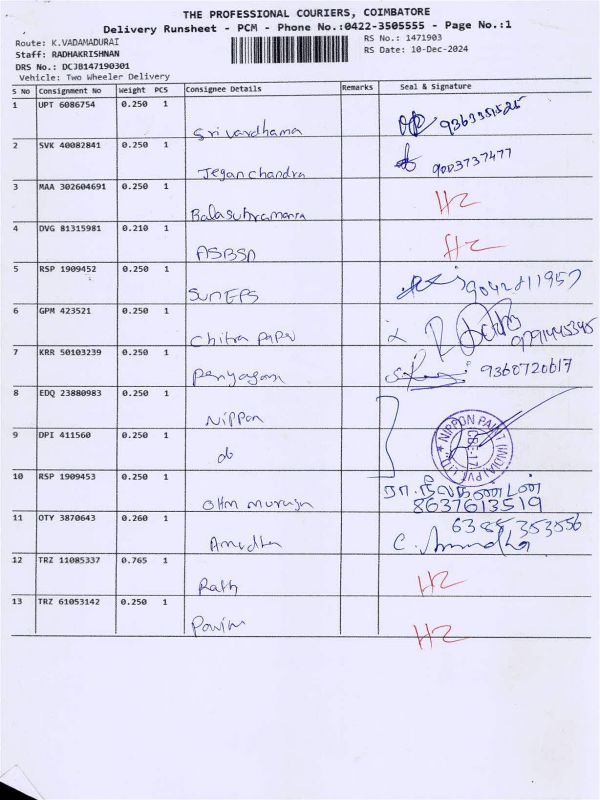 THE PROFESSIONAL COURIERS, COIMBATORE
Delivery Runsheet - PCM - Phone No.:0422-3505555 - Page No.:1
Route: K.VADAMADURAI RS No.: 1471903
Staff: RADHAKRISHNAN RS Date: 10-Dec-2024
DRS No.: DCJB147190301
Vehicle: Two Wheeler Delivery
S No Consignment No Weight PCS Consignee Details Remarks Seal & Signature
1 UPT 6086754 0.250 1
Srivardhama 9363351525
2 SVK 40082841 0.250 1
Jegan chandra 9003737477
3 MAA 302604691 0.250 1
Balasubramania HZ
4 DVG 81315981 0.210 1
ASBSN HZ
5 RSP 1909452 0.250 1
SunEPS
6 GPM 423521 0.250 1
Chitra Paper
7 KRR 50103239 0.250 1
9360720617
8 EDQ 23880983 0.250 1
Nippon
NIPPON PAINT (INDIA) PVT LTD
9 DPI 411560 0.250 1
do
10 RSP 1909453 0.250 1
ரா.நீலகண்டன்
Ohm muruga 8637613519
11 OTY 3870643 0.260 1
Amudha C. Amudha
12 TRZ 11085337 0.765 1
HZ
13 TRZ 61053142 0.250 1
HZ